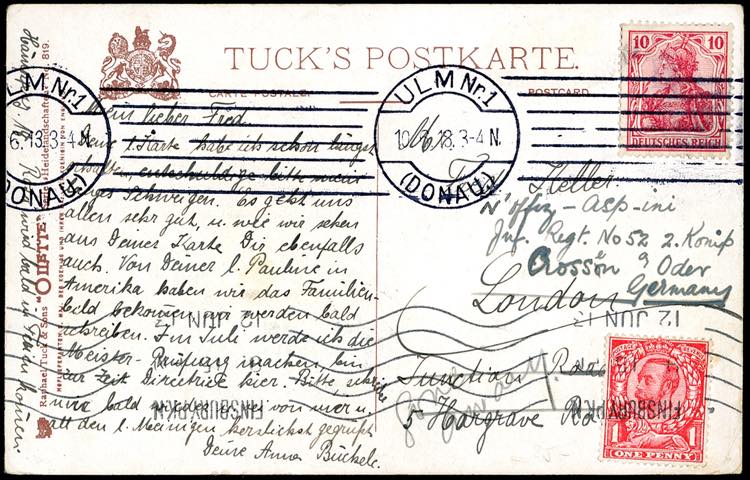 TUCK'S POSTKARTE.
CARTE POSTALE
POSTCARD
10 10
DEUTSCHES REICH
ULM Nr. 1
6.13.3-4 N.
(DONAU)
ULM Nr. 1
10. 6. 13. 3-4 N.
(DONAU)
Mein lieber Fred.
Deine l. Karte habe ich schon längst
erhalten, entschuldige bitte mein
langes Schweigen. Es geht uns
allen sehr gut, u. wie wir sehen
aus Deiner Karte Dir ebenfalls
auch. Von Deiner l. Pauline in
Amerika haben wir das Familien-
bild bekommen wir werden bald
schreiben. Im Juli werde ich die
Meister-Prüfung machen, bin
zur Zeit Directrice hier. Bitte schreibe
mir bald von mir u.
all den l. Meinigen herzlichst gegrüßt
Deine Anna Bückele.
Heller
N'Offiz-Asp-ini
Inf. Regt. No 52 2. Komp
Crossen a Oder
Germany
London
Junction Road
5 Hargrave Rd
12 JUN 13
FINSBURY PK. N.
12 JUN 13
FINSBURY PK. N.
ONE PENNY
1 1
Raphael Tuck & Sons "OILETTE" Heidelandschaften No. 819.